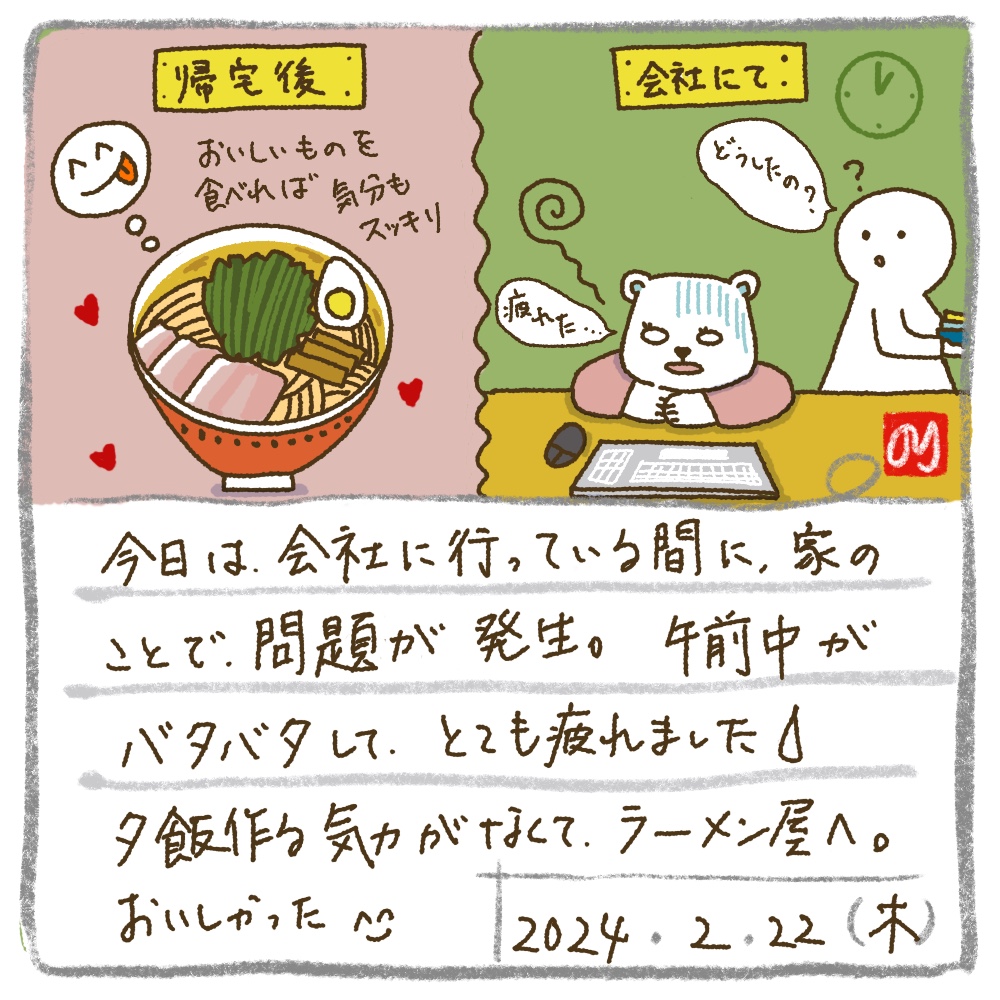 会社にて
どうしたの?
?
疲れた...
帰宅後
おいしいものを
食べれば 気分も
スッキリ
今日は、会社に行っている間に、家の
ことで、問題が 発生。 午前中が
バタバタして、とても疲れました
夕飯作る気力がなくて、ラーメン屋へ。
おいしかった
2024.2.22(木)